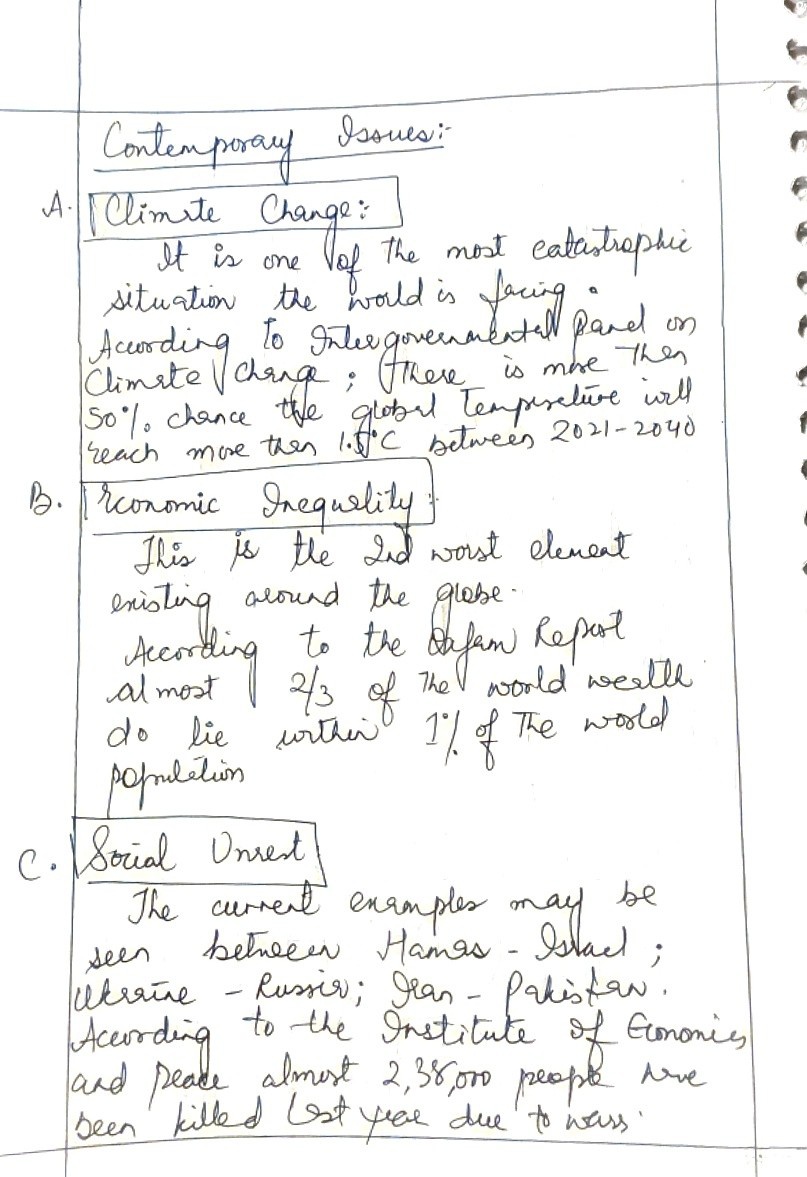 Contemporary Issues:-
A. Climate Change:-
It is one of the most catastrophic
situation the world is facing.
According to Intergovernmental Panel on
Climate Change; there is more then
50% chance the global temperature will
reach more then 1.5°C between 2021-2040
B. Economic Inequality:
This is the 2nd worst element
existing around the globe.
According to the Oxfam Report
almost 2/3 of the world wealth
do lie within 1% of the world
population
C. Social Unrest
The current examples may be
seen between Hamas - Israel;
Ukraine - Russia; Iran - Pakistan.
According to the Institute of Economics
and peace almost 2,38,000 people have
been killed last year due to wars.